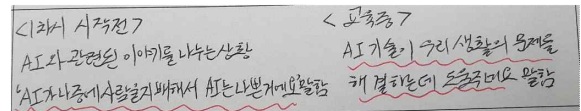 <1차시 시작전>
AI와 관련된 이야기를 나누는 상황
"AI가 나중에 사람을 지배해서 AI는 나쁜거에요" 말함
<교육중>
AI 기술이 우리 생활의 문제를
해결하는데 도움주네요 말함